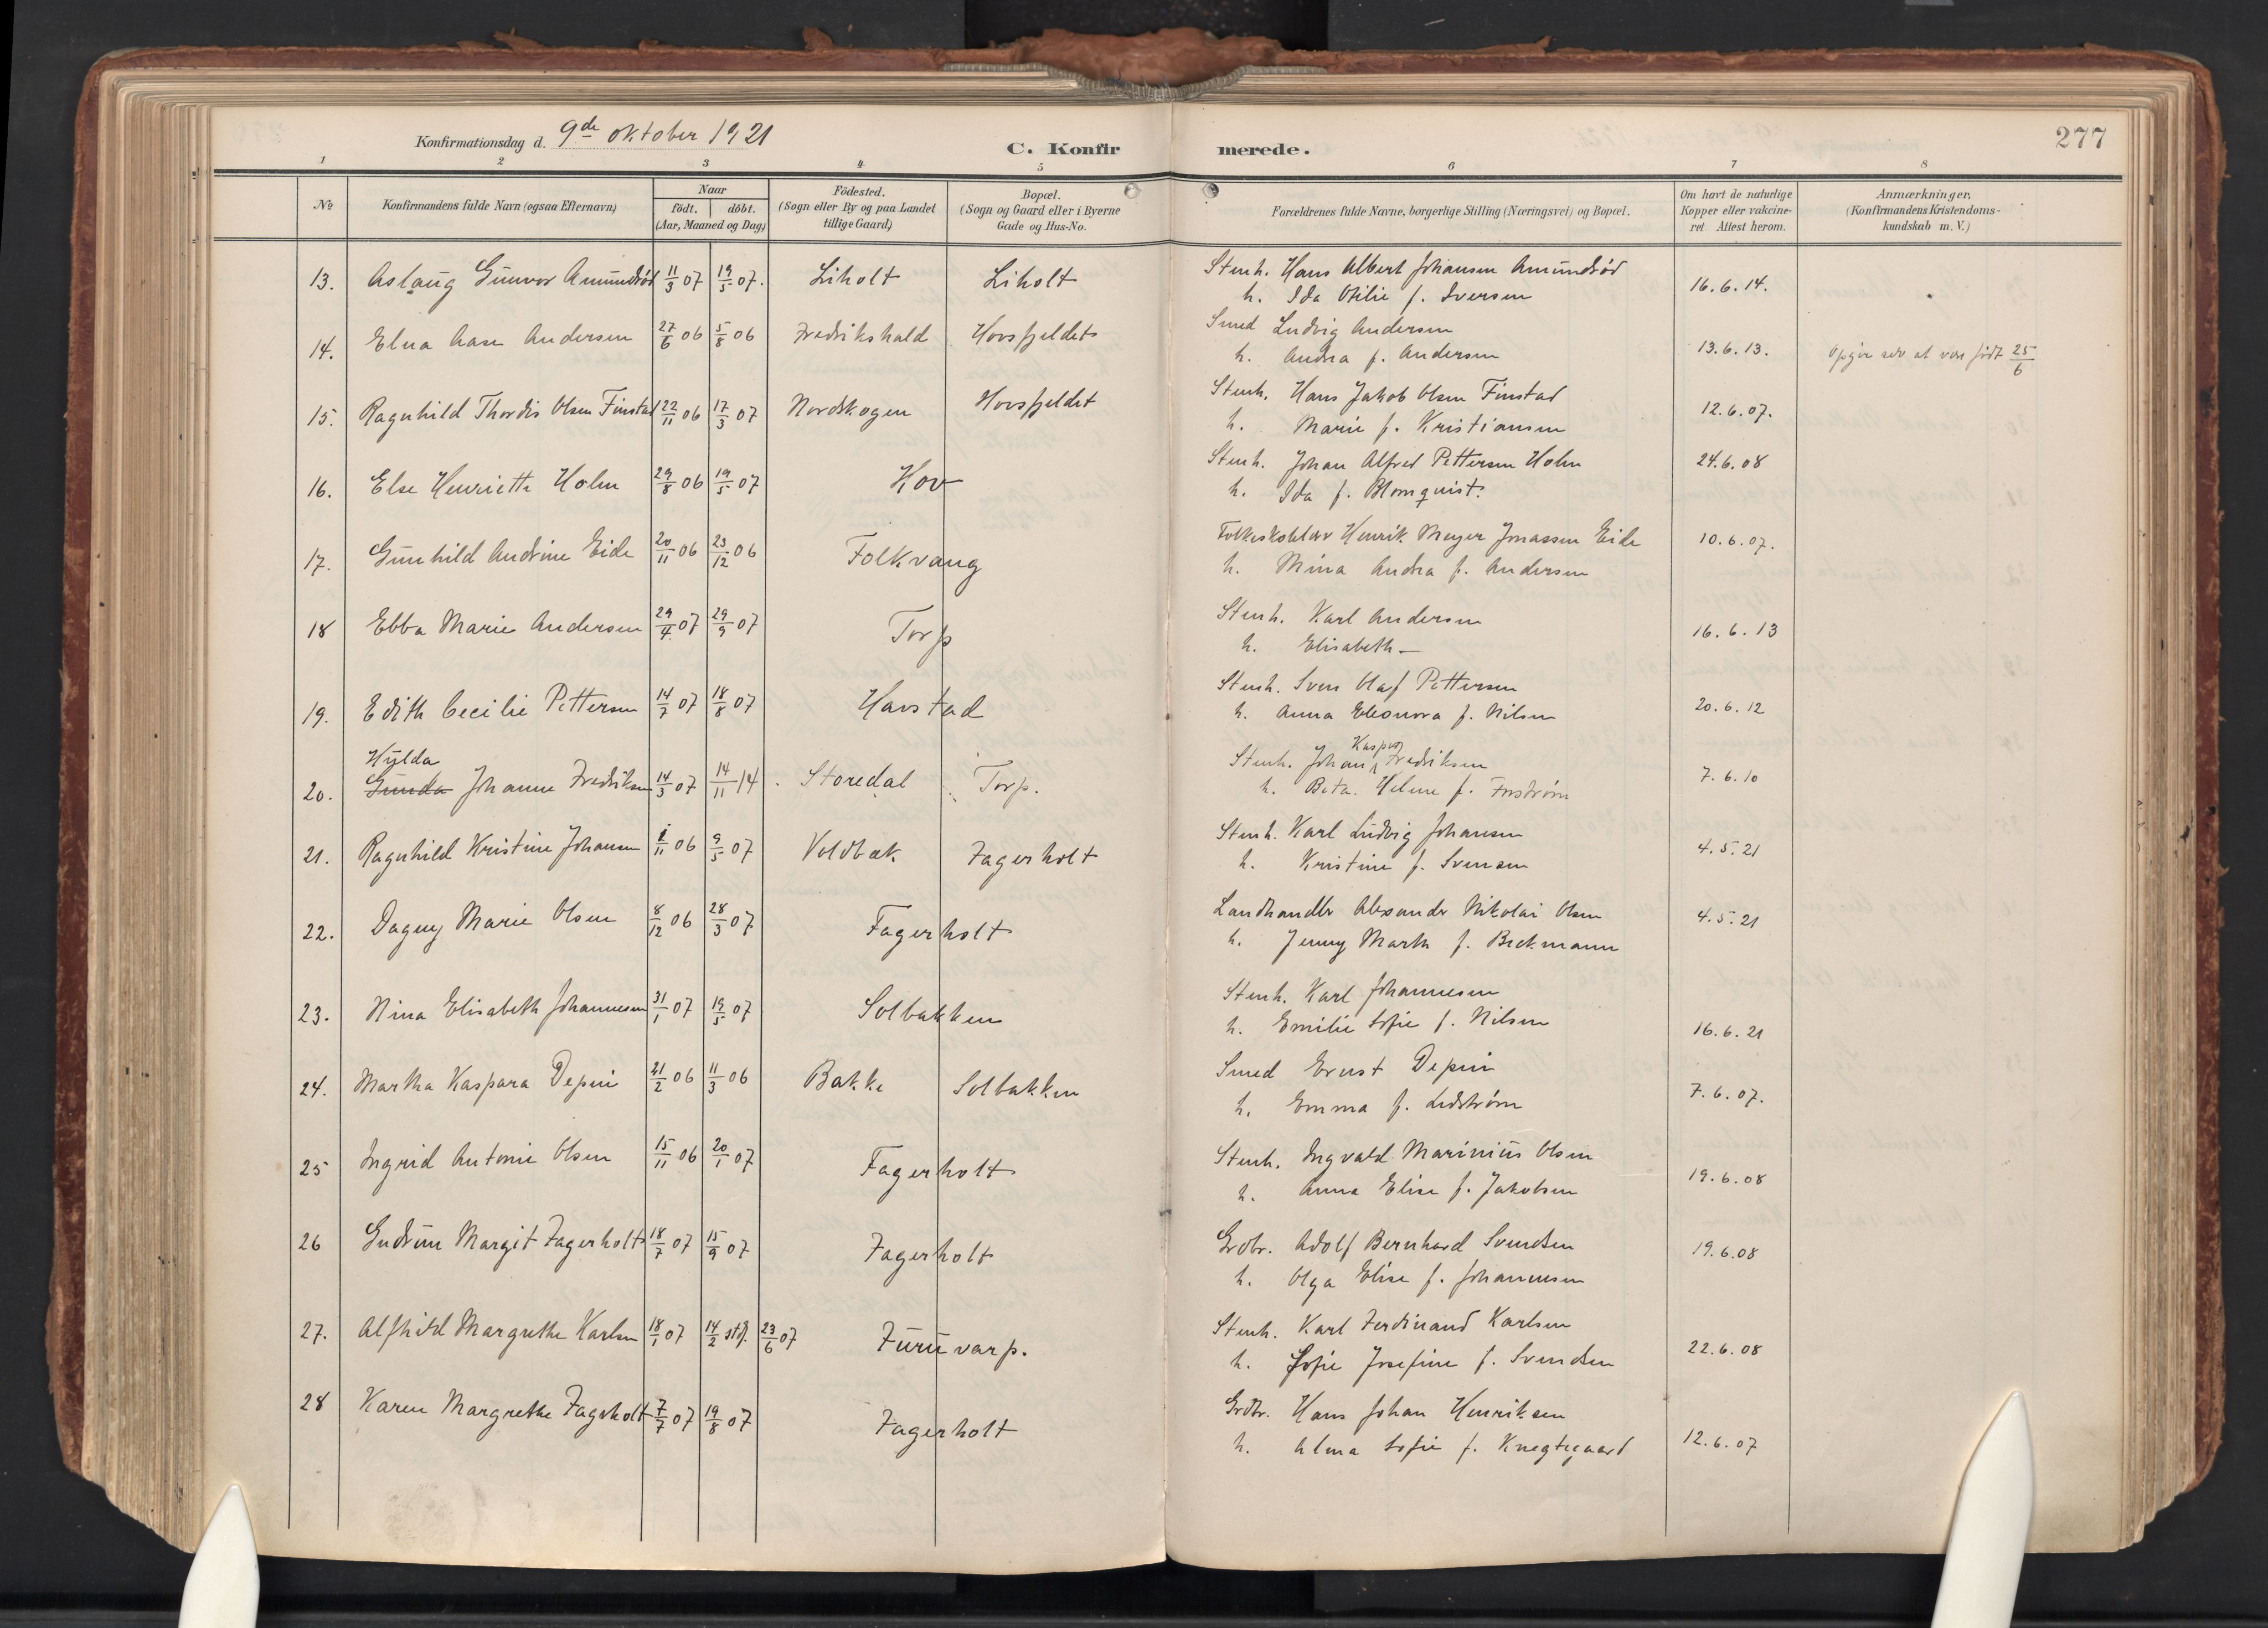 277
Konfirmationsdag d. 9de oktober 1921
C. Konfirmerede.
1 2 3 4 5 6 7 8
No
Konfirmandens fulde Navn (ogsaa Efternavn)
Naar
födt. döbt.
(Aar, Maaned og Dag)
Födested.
(Sogn eller By og paa Landet
tillige Gaard)
Bopæl.
(Sogn og Gaard eller i Byerne
Gade og Hus-No.
Forældrenes fulde Navne, borgerlige Stilling (Næringsvei) og Bopæl.
Om havt de naturlige
Kopper eller vakcine-
ret Attest herom.
Anmærkninger,
(Konfirmandens Kristendoms-
kundskab m. V.)
13. Aslaug Gunvor Amundrød 11/3 07 19/5 07. Liholt Liholt
Stenh. Hans Albert Johansen Amundrød
h. Ida Otilie f. Iversen
16.6.14.
14. Elna Aase Andersen 27/6 06 5/8 06 Fredrikshald Hovsfjeldet
Smed Ludvig Andersen
h. Andrea f. Andersen
13.6.13.
Opgir selv at være født 25/6
15. Ragnhild Thordis Olsen Finstad 22/11 06 17/3 07 Nordskogen Hovsfjeldet
Stenh. Hans Jakob Olsen Finstad
h. Marie f. Kristiansen
12.6.07.
16. Else Henriette Holm 29/8 06 19/5 07 Hov
Stenh. Johan Alfred Pettersen Holm
h. Ida f. Blomquist.
24.6.08
17. Gunhild Andrine Eide 20/11 06 23/12 06 Folkvang
Folkeskolelærer Henrik Meyer Jonassen Eide
h. Mina Andrea f. Andersen
10.6.07.
18 Ebba Marie Andersen 29/4 07 29/9 07 Torp
Stenh. Karl Andersen
h. Elisabeth —
16.6.13
19. Edith Cecilie Pettersen 14/7 07 18/8 07 Havstad
Stenh. Sven Olaf Pettersen
h. Anna Eleonora f. Nilsen
20.6.12
Hylda
20. Gunda Johanne Fredriksen 14/3 07 14/11 14 Storedal Torp.
Kasper
Stenh. Johan Fredriksen
h. Beta Helene f.
7.6.10
21. Ragnhild Kristine Johansen 1/11 06 9/5 07 Voldbæk Fagerholt
Stenh. Karl Ludvig Johansen
h. Kristine f. Svensen
4.5.21
22. Dagny Marie Olsen 8/12 06 28/3 07 Fagerholt
Landhandler Alexander Nikolai Olsen
h. Jenny Marth f. Beckmann
4.5.21
23. Nina Elisabeth Johannesen 31/1 07 19/5 07 Solbakken
Stenh. Karl Johannesen
h. Emilie Sofie f. Nilsen
16.6.21
24. Martha Kaspara Depui 21/2 06 11/3 06 Bakke Solbakken
Smed Ernst Depui
h. Emma f. Lidström
7.6.07.
25 Ingrid Antonie Olsen 15/11 06 20/1 07 Fagerholt
Stenh. Ingvald Marinius Olsen
h. Anna Elise f. Jakobsen
19.6.08
26 Gudrun Margit Fagerholt 18/7 07 15/9 07 Fagerholt
Grdbr. Adolf Bernhard Svendsen
h. Olga Elise f. Johannesen
19.6.08
27. Alfhild Margrethe Karlsen 18/1 07 14/2 stf. 23/6 07 Furuvarp.
Stenh. Karl Ferdinand Karlsen
h. Sofie Josefine f. Svendsen
22.6.08
28 Karen Margrethe Fagerholt 7/7 07 19/8 07 Fagerholt
Grdbr. Hans Johan Henriksen
h. Alma Sofie f. Knegtegaard
12.6.07